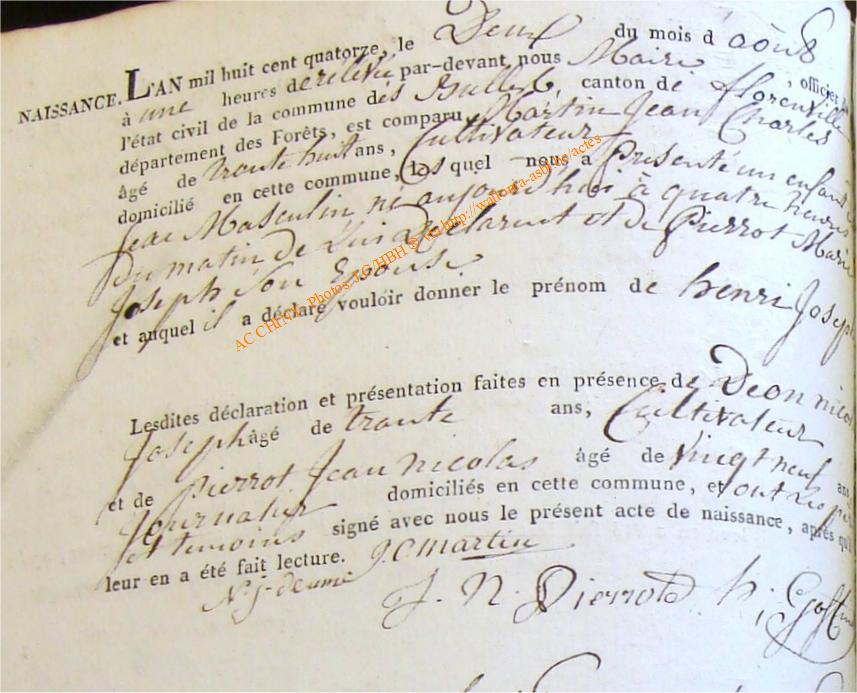 NAISSANCE. L'AN mil huit cent quatorze, le Deux du mois d août
à une heures de rélevée par-devant nous Maire, officier
l'état civil de la commune des Bulles, canton de florenville
département des Forêts, est comparu Martin Jean Charles
âgé de trante huit ans, Cultivateur
domicilié en cette commune, les quel nous a presenté un enfant
sexe Masculin, né aujourd'hui à quatre heures
du matin de Lui Déclarent et de Pierrot Marie
Joseph Son Epouse
et auquel il a déclaré vouloir donner le prénom de henri Joseph
Lesdites déclaration et présentation faites en présence de Deon nicolas
Joseph âgé de trante ans, Cultivateur
et de Pierrot Jean nicolas âgé de vingt neuf ans
Journalier domiciliés en cette commune, et ont Les pere
et temoins signé avec nous le présent acte de naissance, après qu'il
leur en a été fait lecture. J. C martin
N. j. J. N. Pierrot h.
AC CHINY Photos JG/HBH © via http://wallonia-asbl.be/actes